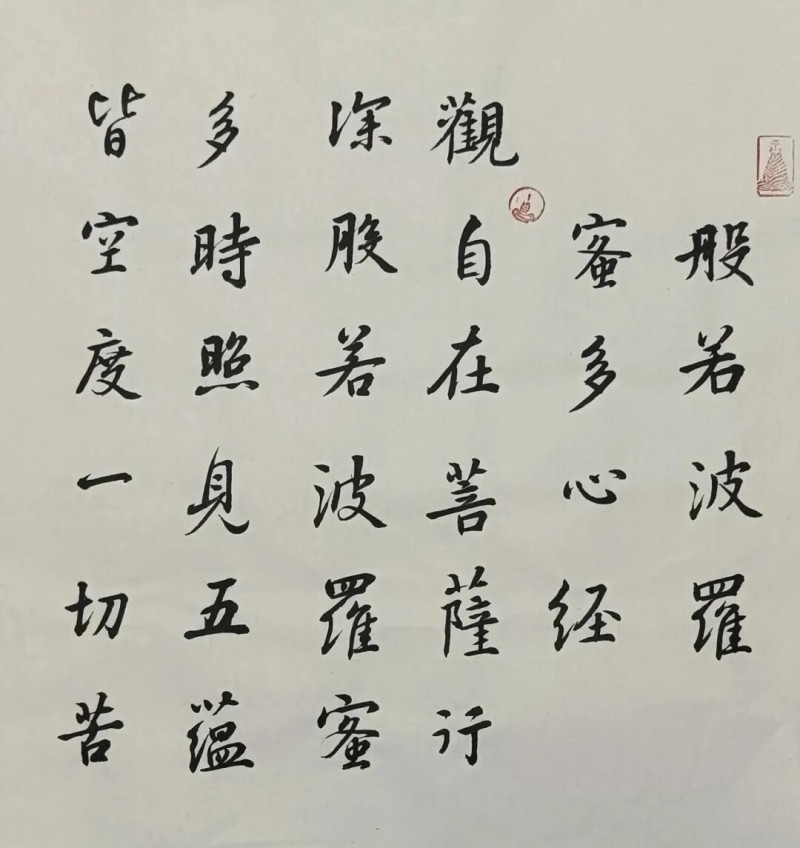 般若波羅
蜜多心经
觀自在菩薩行
深般若波羅蜜
多時照見五蘊
皆空度一切苦